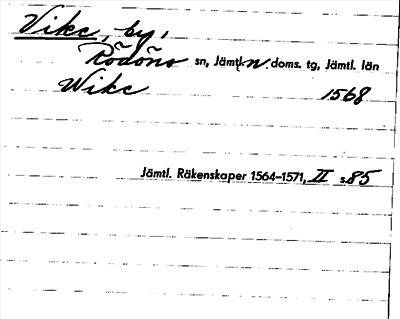 Vike, by,
Rödöns sn, Jämtl. N. doms. tg, Jämtl. län
Wike 1568
Jämtl. Räkenskaper 1564–1571, II s. 85